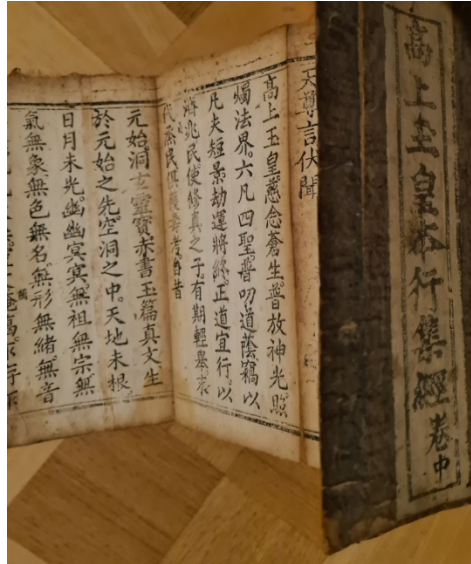 高上玉皇本行集經卷中
天尊言伏聞
高上玉皇慈念蒼生普放神光照
燭法界。六凡四聖。普叨道蔭竊以
凡夫短景劫運將終。正道宜行。以
濟兆民使修真之子。有期輕舉末
代烝民俱獲壽考自昔
元始洞玄靈寶赤書玉篇真文生
於元始之先。空洞之中。天地未根。
日月未光。幽幽冥冥。無祖無宗。無
氣無象無色無名。無形無緒無音